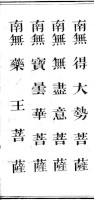 南無得大勢菩薩
南無無盡意菩薩
南無寶曇華菩薩
南無藥王菩薩